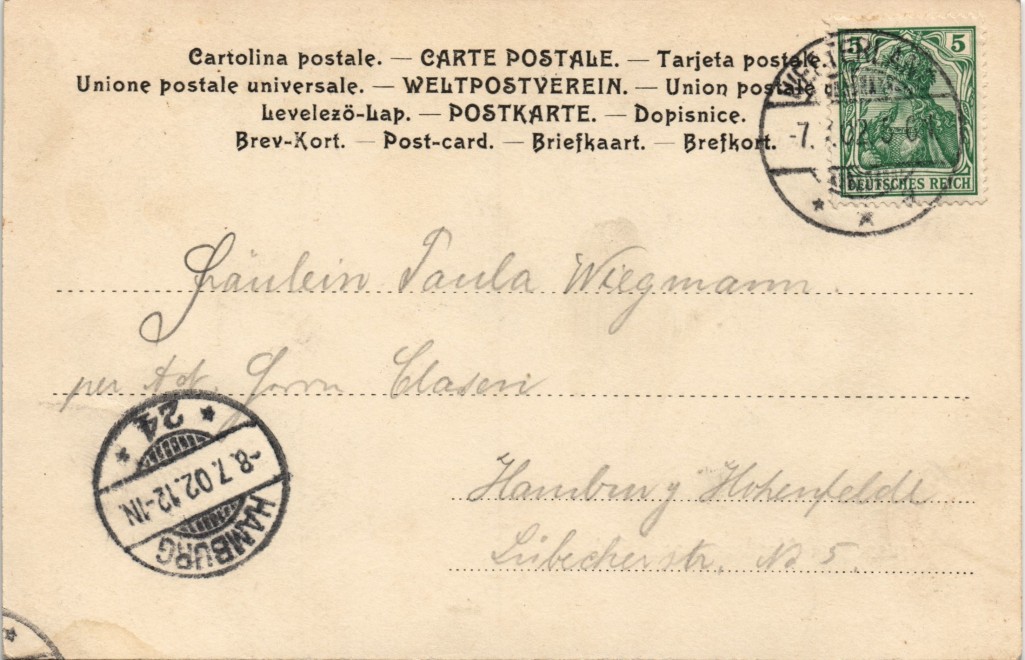 Cartolina postale. — CARTE POSTALE. — Tarjeta postale.
Unione postale universale. — WELTPOSTVEREIN. — Union postale
Levelezö-Lap. — POSTKARTE. — Dopisnice.
Brev-Kort. — Post-card. — Briefkaart. — Brefkort.
5 5
DEUTSCHES REICH
-7.7.02. 5-6N
Fräulein Paula Wiegmann
per Adr. Herrn Clasen
24
-8.7.02.12-1N
HAMBURG
Hamburg Hohenfelde
Lübecherstr. No 5.